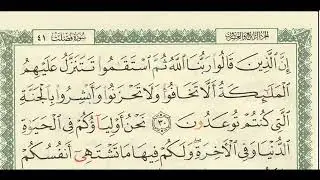 الجزء الرابع والعشرون سورة فصلت ٤١
إِنَّ ٱلَّذِينَ قَالُوا۟ رَبُّنَا ٱللَّهُ ثُمَّ ٱسْتَقَـٰمُوا۟ تَتَنَزَّلُ عَلَيْهِمُ
ٱلْمَلَـٰٓئِكَةُ أَلَّا تَخَافُوا۟ وَلَا تَحْزَنُوا۟ وَأَبْشِرُوا۟ بِٱلْجَنَّةِ
ٱلَّتِى كُنتُمْ تُوعَدُونَ ٣٠ نَحْنُ أَوْلِيَآؤُكُمْ فِى ٱلْحَيَوٰةِ
ٱلدُّنْيَا وَفِى ٱلْـَٔاخِرَةِ ۖ وَلَكُمْ فِيهَا مَا تَشْتَهِىٓ أَنفُسُكُمْ